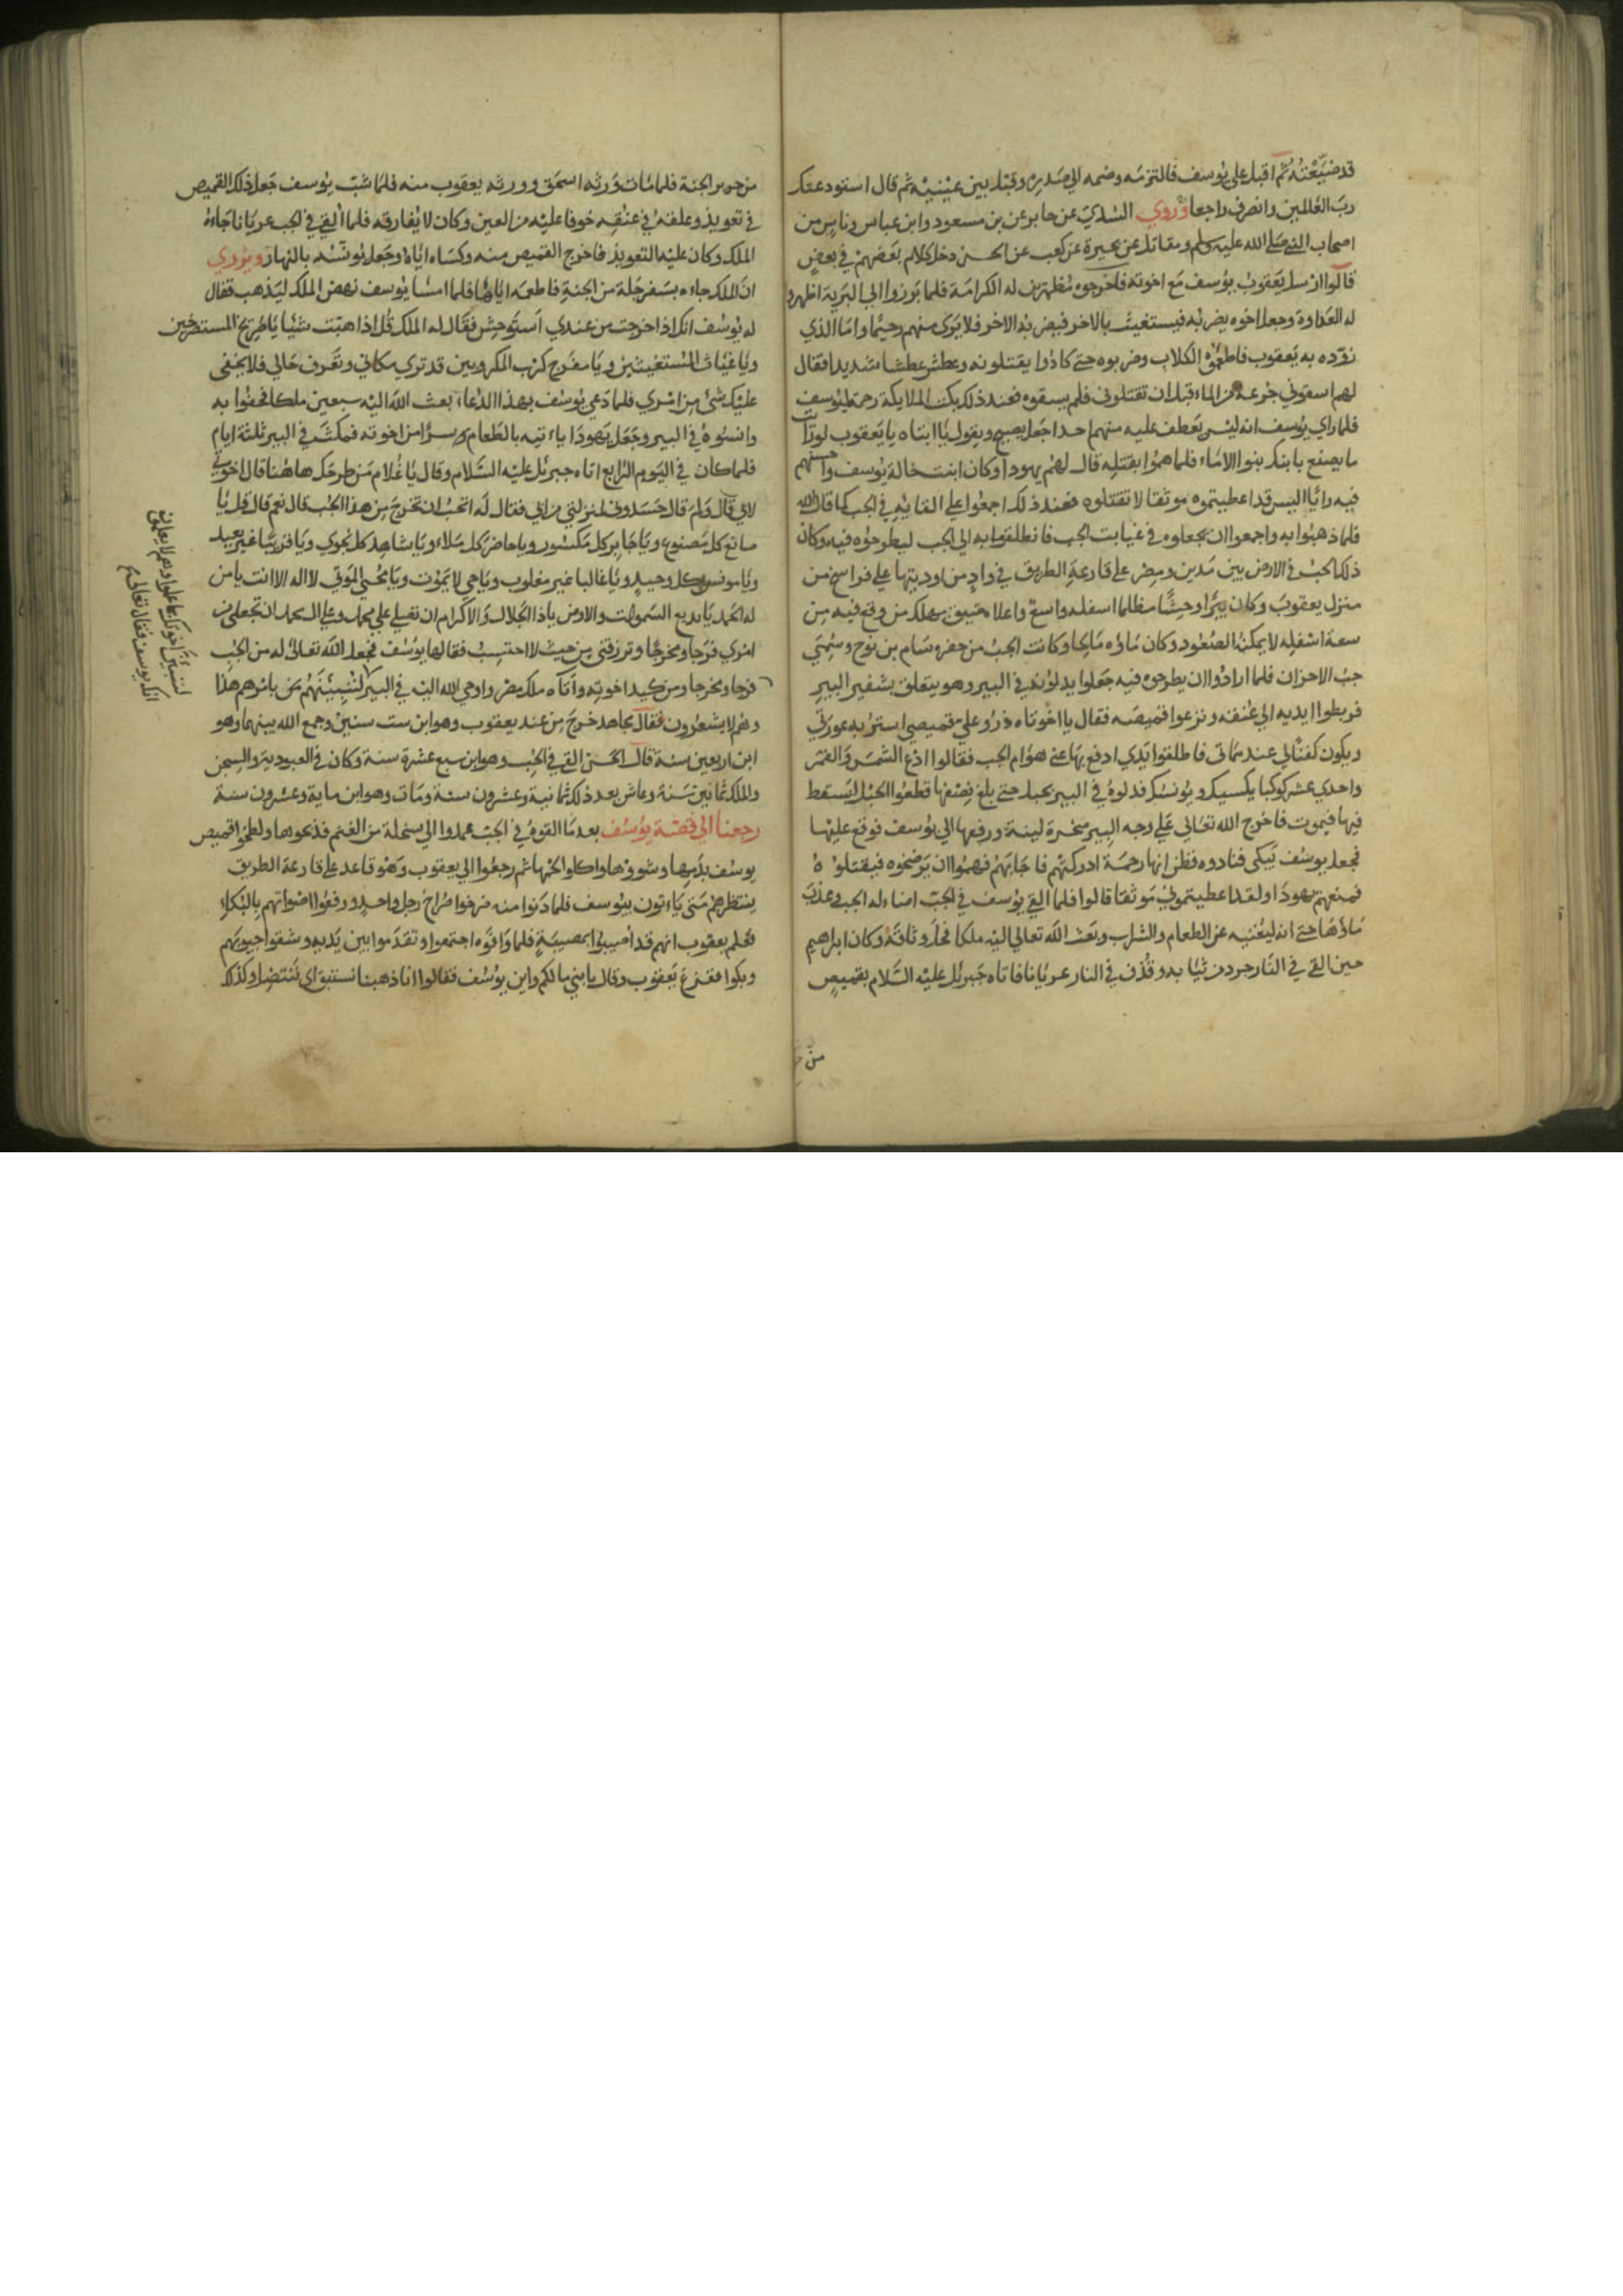 قد ضيّعته ثم اقبل على يوسف فالتزمه وضمه الي صدره وقبل بين عينيه ثم قال استودعتك
رب العالمين وانصرف راجعا وروي السدي عن جابر عن بن مسعود وابن عباس وناس من
اصحاب النبي صلى الله عليه وسلم ومقاتل عن كعب عن الحسن دخل كلام بعضهم في بعض
قالوا ارسل يعقوب يوسف مع اخوته فاخرجوه مظهرين له الكرامة فلما برزوا الي البرية اظهروا
له العداوة وجعل اخوه يضربه فيستغيث بالاخر فيضربه الاخر فلا يرى منهم رحيما واما الذي
زوده به يعقوب فاطعموه الكلاب وضربوه حتى كادوا يقتلونه وعطش عطشا شديدا فقال
لهم اسقوني جرعة من الماء قبل ان تقتلوني فلم يسقوه فعند ذلك بكت الملايكة رحمة ليوسف
فلما راي يوسف انه ليس يعطف عليه منهم احد جعل يصيح ويقول يا ابتاه يا يعقوب لو رايت
ما يصنع بابنك بنوا الاماء فلما هموا بقتله قال لهم يهودا وكان ابن خالة يوسف واحسنهم
فيه رأيا اليس قد اعطيتموه موثقا لا تقتلوه فعند ذلك اجمعوا علي القايه في الجب كما قال الله
فلما ذهبوا به واجمعوا ان يجعلوه في غيابت الجب فانطلقوا به الي الجب ليطرحوه فيه وكان
ذلك الجب في الارض بين مدين ومصر علي قارعة الطريق في واد من اوديتها علي فراسخ من
منزل يعقوب وكان بيرا وحيشا مظلما اسفله واسع واعلا ضيق يهلك من وقع فيه من
سعة اسفله لا يمكنه الصعود وكان ماؤه مالحا وكانت الجب من حفر سام بن نوح وسمي
جب الاحزان فلما ارادوا ان يطرحوه فيه جعلوا يدلونه في البير وهو يتعلق بشفير البير
فربطوا يديه الي عنقه ونزعوا قميصه فقال يا اخوتاه ذروا علي قميصي استر به عورتي
ويكون كفنا لي عند مماتي فاطلقوا يدي ادفع بها عني هوام الجب فقالوا ادع الشمس والقمر
واحدي عشر كوكبا يكسيك ويونسك فدلوه في البير بحبل حتى بلغ نصفها قطعوا الحبل ليسقط
فيها فيموت فاخرج الله تعالي علي وجه البير صخرة لينة ورفعها الي يوسف فوقع عليها
فجعل يوسف يبكى فنادوه فظن انها رحمة ادركتهم فاجابهم فهموا ان يرضخوه فيقتلوه
فمنعهم يهودا ولقد اعطيتموني موثقا قالوا فلما القي يوسف في الجب اضاء له الجب وعذب
ماؤها حتى انه ليغنيه عن الطعام والشراب وبعث الله تعالي اليه ملكا فحل وثاقه وكان ابراهيم
حين القي في النار جرد من ثيابه وقذف في النار عريانا فاتاه جبرئل عليه السلام بقميص
من حرير الجنة فلما مات ورثه اسحق وورثه يعقوب منه فلما شب يوسف جعل ذلك القميص
في تعويذ وعلقه في عنقه خوفا عليه من العين وكان لا يفارقه فلما القي في الجب عريانا جاءه
الملك وكان عليه التعويذ فاخرج القميص منه وكساه اياه وجعل يونسه بالنهار ويروي
ان الملك جاءه بسفرجلة من الجنة فاطعمه اياها فلما امسا يوسف نهض الملك ليذهب فقال
له يوسف انك اذا خرجت من عندي استوحش فقال له الملك قل اذا هبت شيئا يا صريخ المستصرخين
ويا غياث المستغيثين ويا مفرج كرب المكروبين قد تري مكاني وتعرف حالي فلا يخفى
عليك شئ من امري فلما دعي يوسف بهذا الدعاء بعث الله اليه سبعين ملكا فحفوا به
وانسوه في البير وجعل يهودا ياءتيه بالطعام سرا من اخوته فمكث في البير ثلثة ايام
فلما كان في اليوم الرابع اتاه جبرئل عليه السلام وقال يا غلام من طرحك ها هنا قال اخوتي
لابي قال ولم قال حسدوني لمنزلتي من ابي فقال له اتحب ان تخرج من هذا الجب قال نعم قال قل يا
صانع كل مصنوع ويا جابر كل مكسور ويا حاضر كل ملاء ويا شاهد كل نجوي ويا قريبا غير بعيد
ويا مونس كل وحيد ويا غالبا غير مغلوب ويا حي لا يموت ويا محيي الموتى لا اله الا انت يا من
له الحمد يا بديع السموات والارض ياذا الجلال والاكرام ان تصلي علي محمد وعلي ال محمد ان تجعل من
امري فرجا ومخرجا وترزقني من حيث لا احتسب فقالها يوسف فجعل الله تعالى له من الجب
فرجا ومخرجا ومن كيد اخوته واتاه ملك مصر واوحي الله اليه في البير لتنبئنهم بامرهم هذا
وهم لا يشعرون فقال مجاهد خرج من عند يعقوب وهو ابن ست سنين وجمع الله بينهما وهو
ابن اربعين سنة قال الحسن القي في الجب وهو ابن سبع عشرة سنة وكان في العبودية والسجن
والملك ثمانين سنة وعاش بعد ذلك ثمانية وعشرون سنة ومات وهو ابن ماية وعشرون سنة
رجعنا الي قصة يوسف بعد ما القوه في الجب عمدوا الي سخلة من الغنم فذبحوها ولطخوا قميص
يوسف بدمها وشووها واكلوا لحمها ثم رجعوا الي يعقوب وهو قاعد علي قارعة الطريق
ينتظرهم متى ياءتون بيوسف فلما دنوا منه صرخوا صراخ رجل واحد ورفعوا اصواتهم بالبكاء
فعلم يعقوب انهم قد اصيبوا بمصيبة فلما وافوه اجتمعوا وتقدموا بين يديه وشقوا جيوبهم
وبكوا ففزع يعقوب وقال يا بني مالكم واين يوسف فقالوا انا ذهبنا نستبق اي ننتضل وكذلك